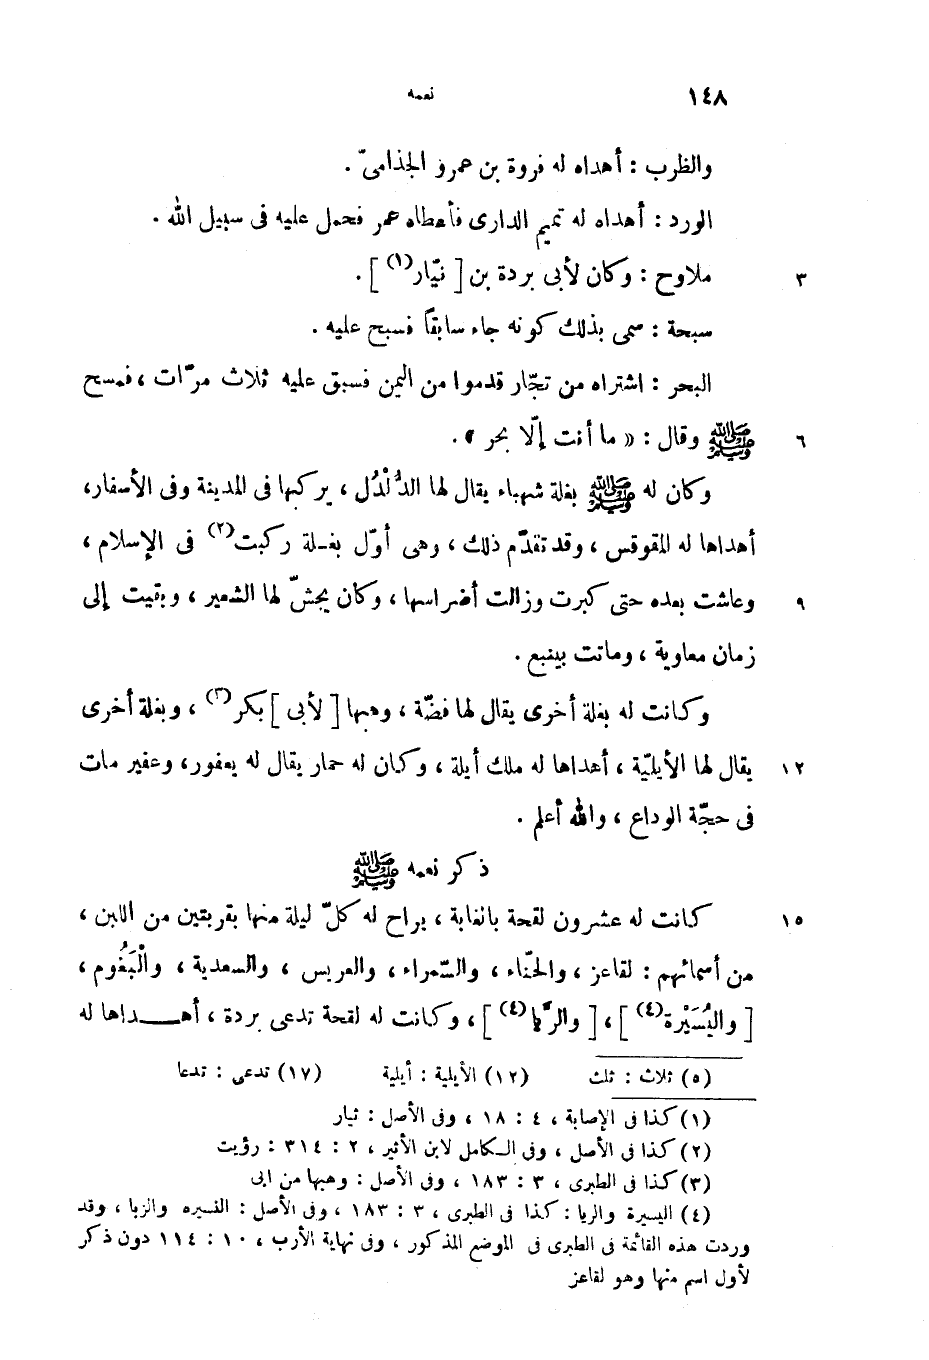 ١٤٨ نعمه
والظرب : أهداه له فروة بن عمرو الجذامىّ .
الورد : أهداه له تميم الدارى فأعطاه عمر فحمل عليه فى سبيل الله .
٣ ملاوح : وكان لأبى بردة بن [ نيّار(١) ] .
سبحة : سمى بذلك كونه جاء سابقاً فسبح عليه .
البحر : اشتراه من تجّار قدموا من اليمن فسبق عليه ثلاث مرّات ، فمسح
٦ ﷺ وقال : « ما أنت إلّا بحر » .
وكان له ﷺ بغلة شهباء يقال لها الدُّلْدُل ، يركبها فى المدينة وفى الأسفار،
أهداها له المقوقس ، وقد تقدّم ذلك ، وهى أوّل بغلة ركبت(٢) فى الإسلام ،
٩ وعاشت بعده حتى كبرت وزالت أضراسها ، وكان يجشّ لها الشعير ، وبقيت إلى
زمان معاوية ، وماتت بينبع .
وكانت له بغلة أخرى يقال لها فضّة ، وهبها [ لأبى ] بكر(٣) ، وبغلة أخرى
١٢ يقال لها الأيليّة ، أهداها له ملك أيلة ، وكان له حمار يقال له يعفور، وعفير مات
فى حجّة الوداع ، والله أعلم .
ذكر نعمه ﷺ
١٥ كانت له عشرون لقحة بالغابة ، يراح له كلّ ليلة منها بقربتين من اللبن ،
من أسمائهم : لقاعز ، والحنّاء ، والسّمراء ، والعريس ، والسعدية ، والْبَغُوم ،
[ واليُسَيْرة(٤) ] ، [ والريّا(٤) ] ، وكانت له لقحة تدعى بردة ، أهـداها له
(٥) ثلاث : ثلث (١٢) الأيلية : أيلية (١٧) تدعى : تدعا
(١) كذا فى الإصابة ، ٤ : ١٨ ، وفى الأصل : ثيار
(٢) كذا فى الأصل ، وفى الكامل لابن الأثير ، ٢ : ٣١٤ : رؤيت
(٣) كذا فى الطبرى ، ٣ : ١٨٣ ، وفى الأصل : وهبها من ابى
(٤) اليسيرة والريا : كذا فى الطبرى ، ٣ : ١٨٣ ، وفى الأصل : النسيره والزبا ، وقد
وردت هذه القائمة فى الطبرى فى الموضع المذكور ، وفى نهاية الأرب ، ١٠ : ١١٤ دون ذكر
لأول اسم منها وهو لقاعز